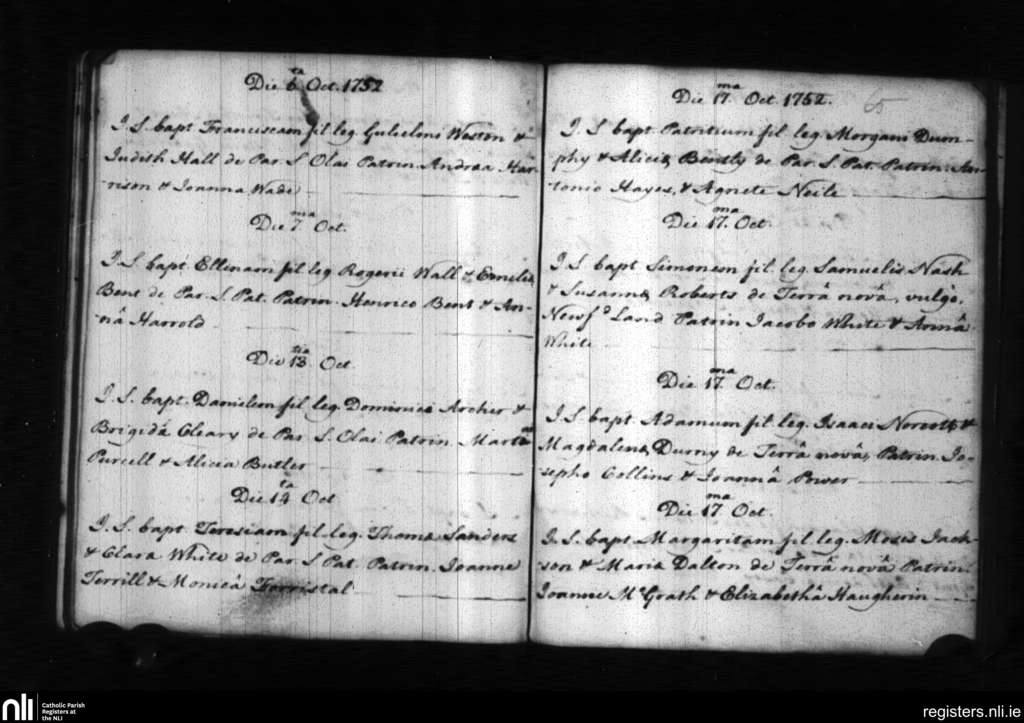 Die 6ta Oct. 1752
I. S. bapt Franciscam fil leg. Gulielmi Weston &
Judith Hall de Par. S Olai Patrin. Andrea Har-
rison & Joanna Wade
Die 7ma Oct.
I. S. bapt Ellenam fil leg Rogerii Wall & Emeliæ
Bent de Par. S Pat. Patrin. Henrico Bent & An-
nâ Harrold
Die 13tia Oct
I. S. bapt. Danielem fil leg. Dominici Archer &
Brigidâ Cleary de Par S. Olai Patrin.
Purcell & Alicia Butler
Die 14ta Oct
I. S. bapt Teresiam fil leg. Thomæ Sanders
& Clara White de Par. S Pat. Patrin. Joanne
Terrill & Monicâ Forristal
Die 17ma Oct 1752.
65
I. S bapt Patritium fil leg. Morgani Dum-
phy & Aliciæ Bently de Par. S. Pat. Patrin. An-
tonio Hayes, & Agnete Neile
Die 17.ma Oct.
I. S bapt Simonem fil. leg. Samuelis Nash
& Susannæ Roberts de Terrâ novâ, vulgo,
Newfd Land Patrin Jacobo White & Annâ
White
Die 17ma Oct.
I. S. bapt Adamum fil leg. Isaaci Norcott &
Magdalenæ Durny de Terrâ novâ, Patrin. Jo-
sepho Collins & Joannâ Power
Die 17ma Oct.
I. S. bapt Margaritam fil leg. Mosis Jack-
son & Mariæ Dalton de Terrâ novâ Patrin.
Joanne McGrath & Elizabethâ Haugherin
nli
Catholic Parish
Registers at
the NLI
registers.nli.ie